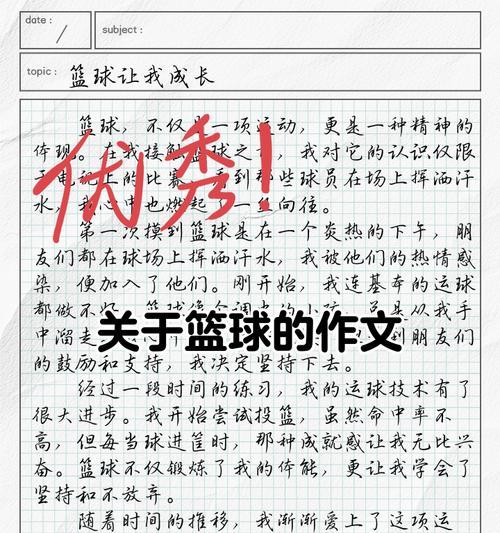 date :
subject :
topic : 篮球让我成长
篮球，不仅是一项运动，更是一种精神的
体现。在我接触篮球之前，我对它的认识仅限
于电视上的比赛，看到那些球员在场上挥洒汗
水，我心中也燃起了一丝向往。
优秀！
第一次摸到篮球是在一个炎热的下午，朋
友们都在球场上挥洒汗水，我被他们的热情感
染，便加入了他们。刚开始，我连基本的运球
都做不好，篮球像个调皮的小孩，总是从我手
中溜走 到朋友们
关于篮球的作文
的鼓励和支持，我决定坚持下去。
经过一段时间的练习，我的运球技术有了
很大进步。我开始尝试投篮，虽然命中率不
高，但每当球进筐时，那种成就感让我无比兴
奋。篮球不仅锻炼了我的体能，更让我学会了
坚持和不放弃。
随着时间的推移，我渐渐爱上了这项运